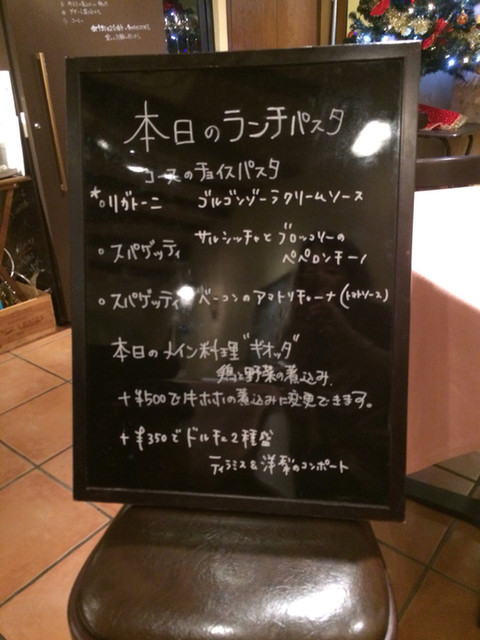 本日のランチパスタ
コースのチョイスパスタ
*○リガトーニ ゴルゴンゾーラクリームソース
○スパゲッティ サルシッチャとブロッコリーの
ペペロンチーノ
○スパゲッティ ベーコンのアマトリチャーナ(トマトソース)
本日のメイン料理"ギオッタ"
鶏と野菜の煮込み.
+¥500で牛ホホの煮込みに変更できます。
+¥350でドルチェ2種盛
ティラミス&洋梨のコンポート